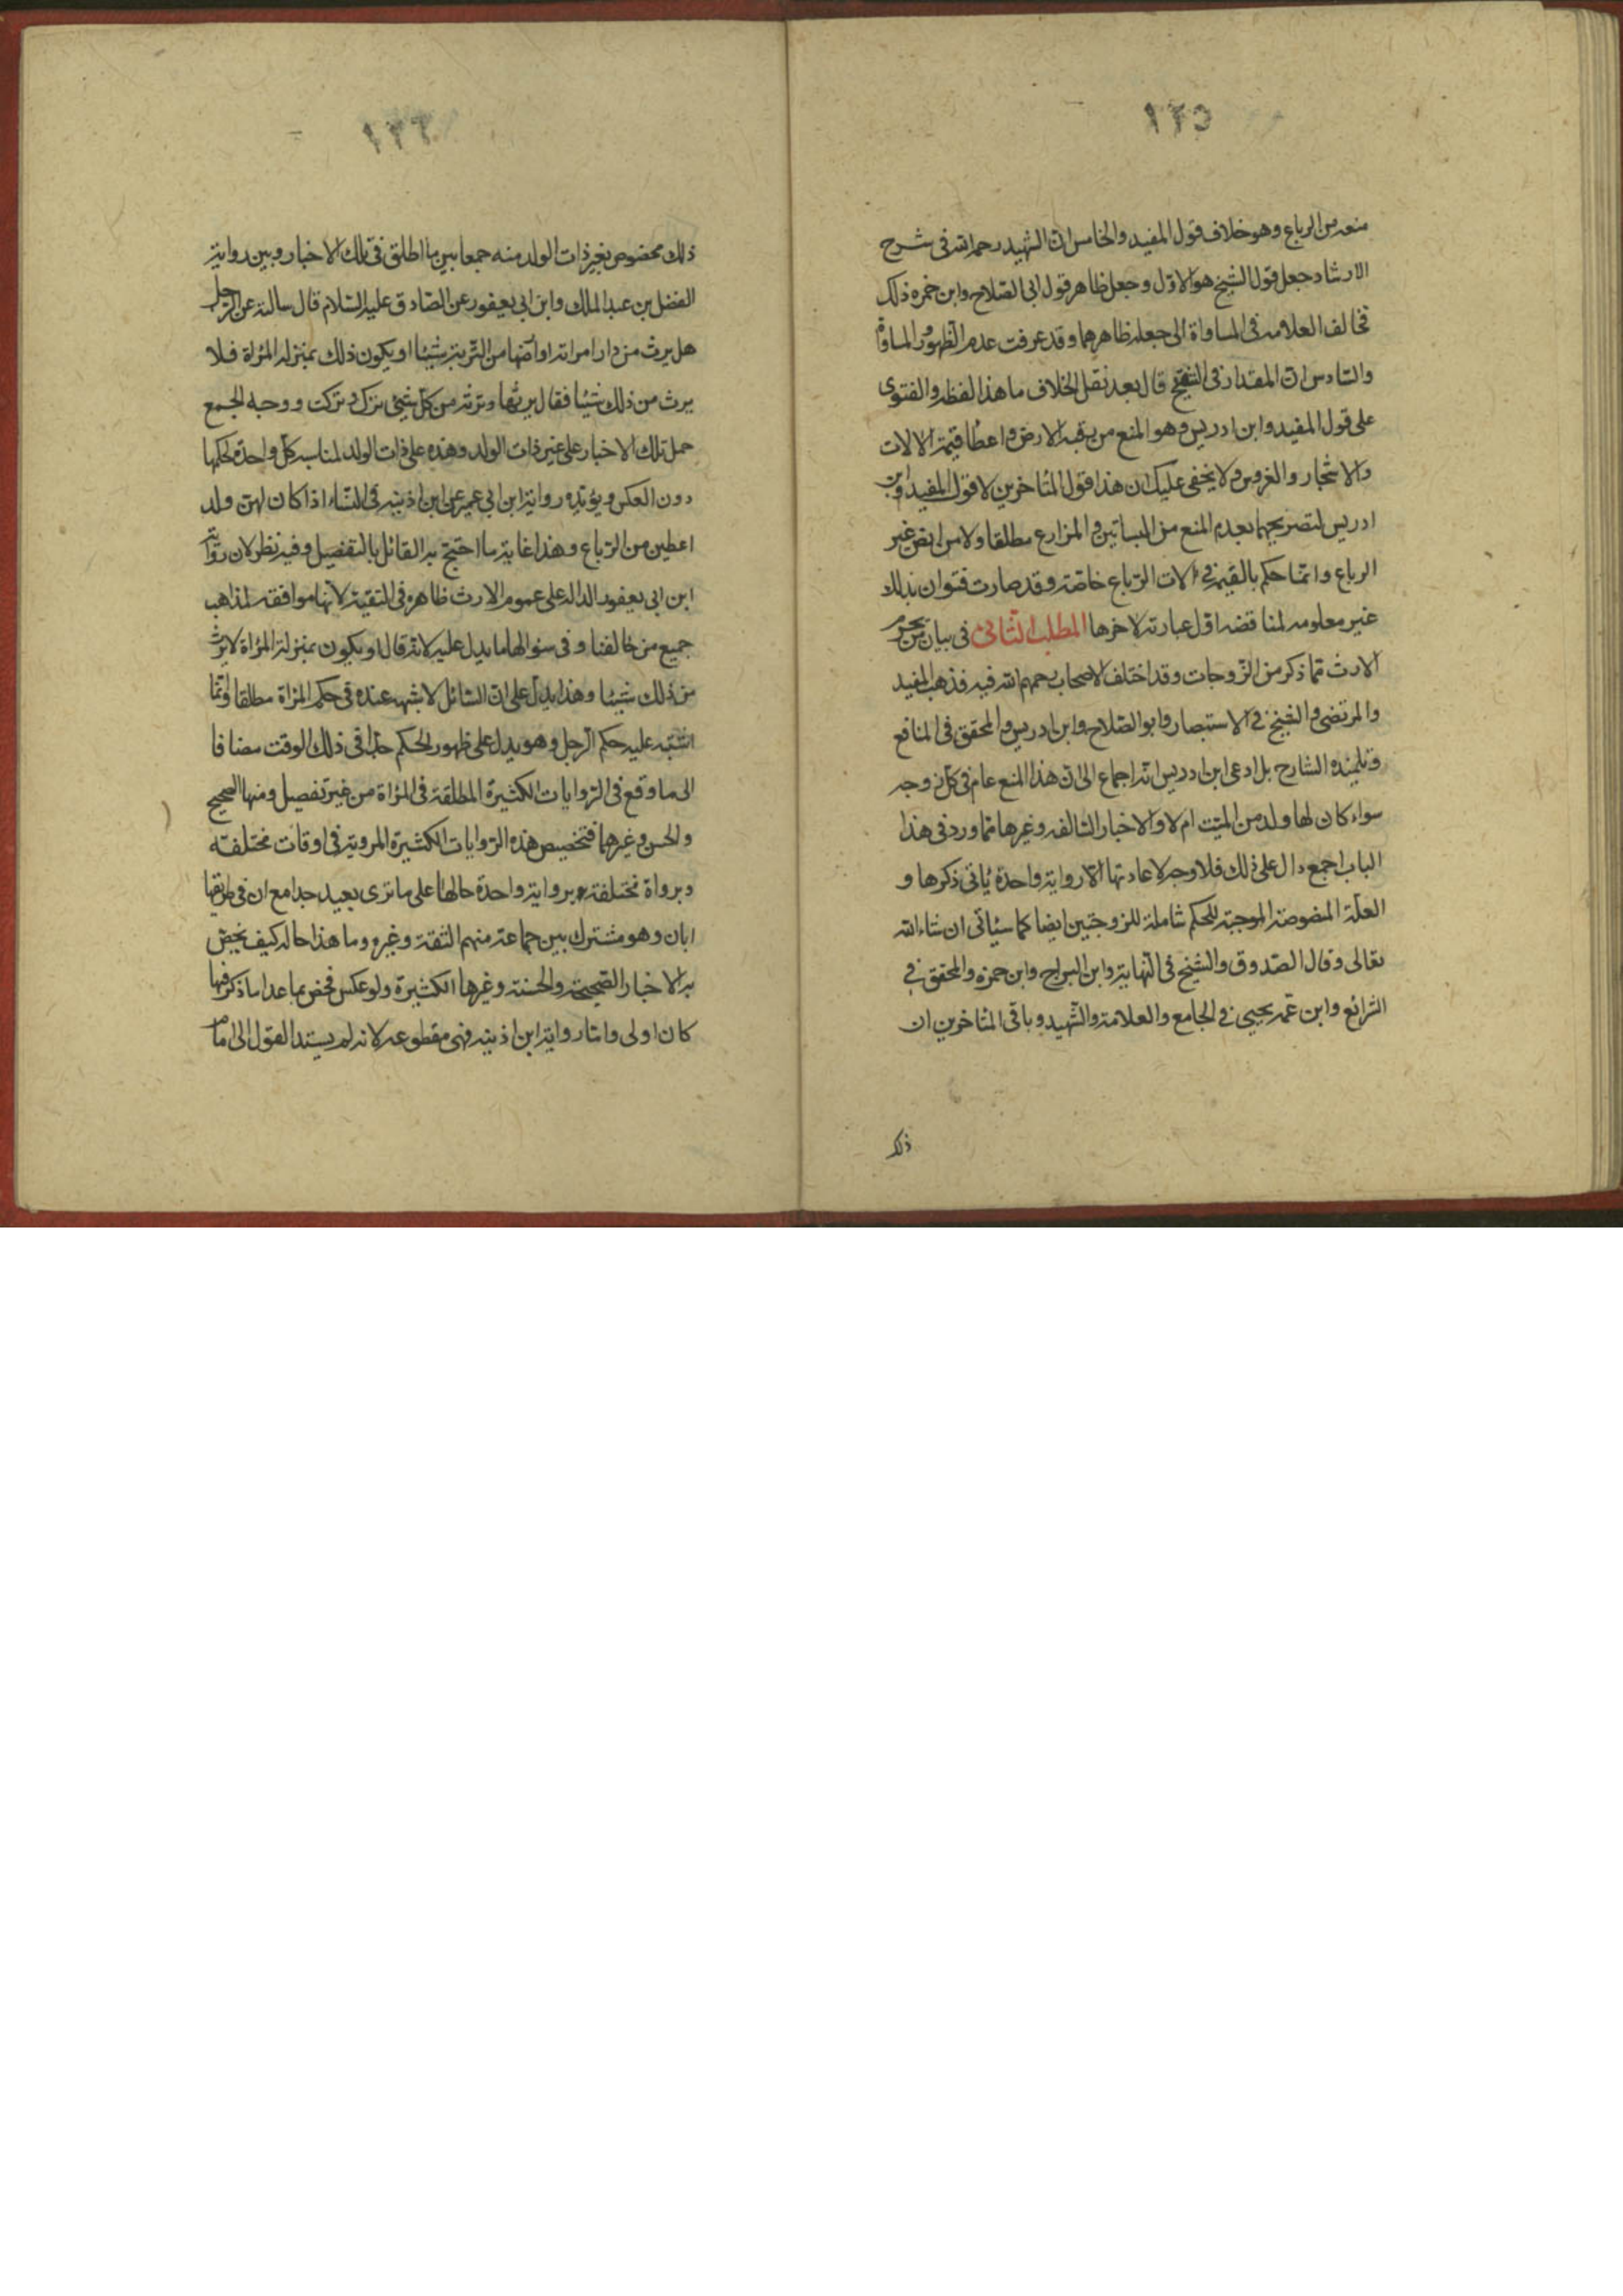 ١٢٥
منعه من الرباع وهو خلاف قول المفيد والخامس ان الشهيد رحمه الله فى شرح
الارشاد جعل قول الشيخ هو الاول وجعل ظاهر قول ابى الصلاح وابن حمزه ذلك
فخالف العلامه فى المساواة الى جعله ظاهرهما وقد عرفت عدم الظهور المساواة
والسادس ان المقداد فى التنقيح قال بعد نقل الخلاف ما هذا لفظه والفتوى
على قول المفيد وابن ادريس وهو المنع من رقبه الارض واعطا قيمة الالات
والاشجار والغروس ولا يخفى عليك ان هذا قول المتاخرين لا قول المفيد وابن
ادريس لتصريحهما بعدم المنع من البساتين و المزارع مطلقا ولا من ارض غير
الرباع وانما حكم بالقيمة فى الات الرباع خاصة وقد صارت فتوان بذلك
غير معلومه لمناقضه اول عبارته لاخرها المطلب الثانى فى بيان من يحرم
الارث مما ذكر من الزوجات وقد اختلف الاصحاب رحمهم الله فيه فذهب المفيد
والمرتضى والشيخ فى الاستبصار وابو الصلاح وابن ادريس والمحقق فى النافع
وتلميذه الشارح بل ادعى ابن ادريس انه اجماع الى ان هذا المنع عام فى كل زوجه
سواء كان لها ولد من الميت ام لا والاخبار السالفه وغيرها مما ورد فى هذا
الباب اجمع دال على ذلك فلا وجه لاعادتها الا رواية واحدة ياتى ذكرها و
العلة المنصوصة الموجبة للحكم شاملة للزوجتين ايضا كما سياتى ان شاء الله
تعالى وقال الصدوق والشيخ فى النهاية وابن البراج وابن حمزه والمحقق فى
الشرائع وابن عمه يحيى فى الجامع والعلامة والشهيد وباقى المتاخرين ان
ذلك
١٢٦
ذلك مخصوص بغير ذات الولد منه جمعا بين ما اطلق فى تلك الاخبار وبين رواية
الفضل بن عبد الملك وابن ابى يعفور عن الصادق عليه السلام قال سالته عن الرجل
هل يرث من دار امراته او ارضها من التربة شيئا او يكون ذلك بمنزله المراة فلا
يرث من ذلك شيئا فقال يرثها وترثه من كل شيئ ترك وتركت ووجه الجمع
حمل تلك الاخبار على غير ذات الولد وهذه على ذات الولد لمناسبه كل واحدة لحكمها
دون العكس ويؤيده رواية ابن ابى عمير عن ابن اذينه فى النساء اذا كان لهن ولد
اعطين من الرباع وهذا غاية ما احتج به القائل بالتفصيل وفيه نظر لان رواية
ابن ابى يعفور الداله على عموم الارث ظاهره فى التقية لانها موافقه لمذاهب
جميع من خالفنا وفى سؤالها ما يدل عليه لانه قال او يكون بمنزلة المراة لا يرث
من ذلك شيئا وهذا يدل على ان السائل لا شبهه عنده فى حكم المراة مطلقا وانما
اشتبه عليه حكم الرجل وهو يدل على ظهور الحكم جدا فى ذلك الوقت مضافا
الى ما وقع فى الروايات الكثيرة المطلقة فى المراة من غير تفصيل ومنها الصحيح
والحسن وغيرهما فتخصيص هذه الروايات الكثيرة المروية فى اوقات مختلفه
وبرواة مختلفة برواية واحدة حالها على ما ترى بعيد جدا مع ان فى طريقها
ابان وهو مشترك بين جماعة منهم الثقة وغيره وما هذا حاله كيف يخص
به الاخبار الصحيحة والحسنة وغيرها الكثيرة ولو عكس فخص بما عدا ما ذكر فيها
كان اولى واما رواية ابن اذينه فهى مقطوعه لانه لم يسند القول الى امام